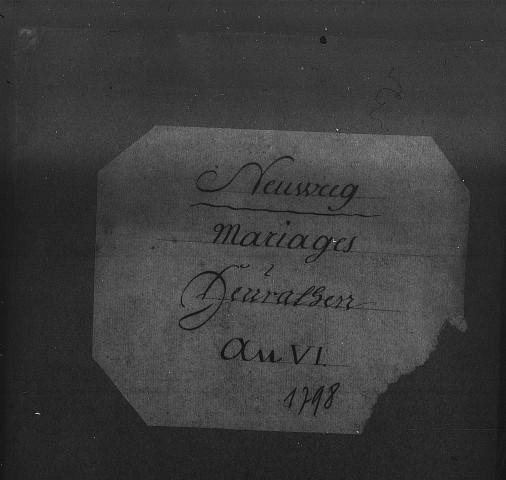 Neuwreg
Mariages
Heurathen
An VI
1798